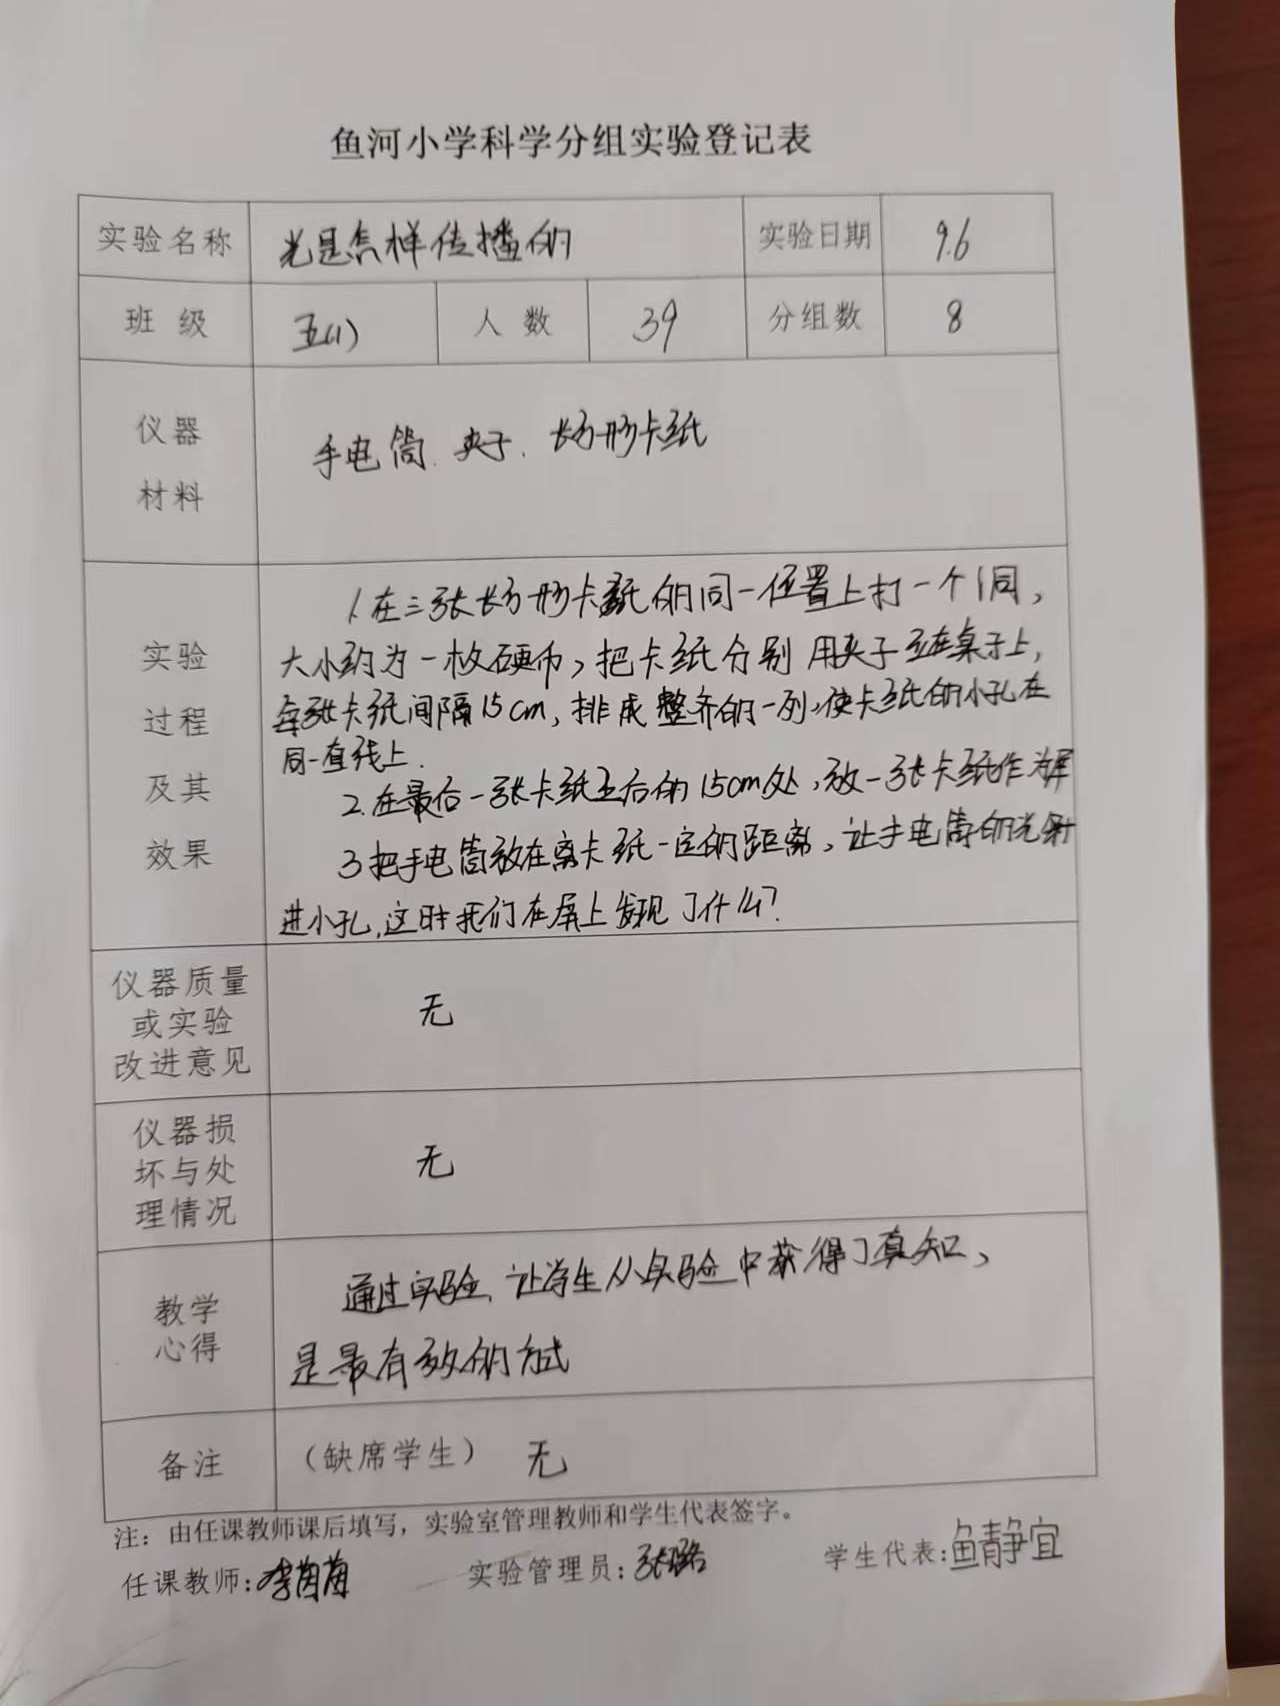 鱼河小学科学分组实验登记表
实验名称 光是怎样传播的 实验日期 9.6
班级 五(1) 人数 39 分组数 8
仪器材料 手电筒、夹子、长方形卡纸
实验过程及其效果
1.在三张长方形卡纸的同一位置上打一个洞，
大小约为一枚硬币，把卡纸分别用夹子立在桌子上，
每张卡纸间隔15cm，排成整齐的一列，使卡纸的小孔在
同一直线上.
2.在最后一张卡纸之后的15cm处，放一张卡纸作为屏
3把手电筒放在离卡纸一定的距离，让手电筒的光射
进小孔，这时我们在屏上发现了什么？
仪器质量或实验改进意见 无
仪器损坏与处理情况 无
教学心得 通过实验、让学生从实验中获得了真知、
是最有效的方式
备注 （缺席学生） 无
注：由任课教师课后填写，实验室管理教师和学生代表签字。
任课教师: 实验管理员: 张璐 学生代表:鱼静宜